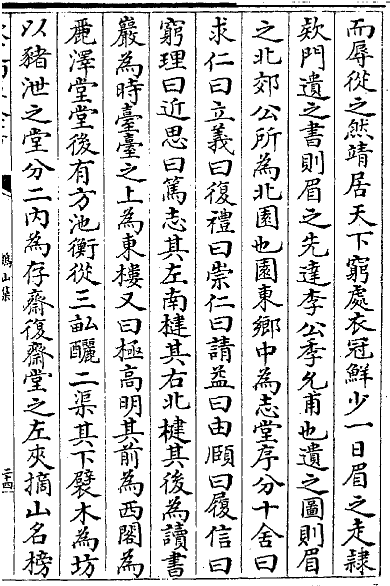 而辱從之然靖居天下窮處衣冠鮮少一日眉之走隸
欵門遺之書則眉之先達李公季允甫也遺之圖則眉
之北郊公所為北園也園東鄉中為志堂序分十舍曰
求仁曰立義曰復禮曰崇仁曰請益曰由頤曰履信曰
窮理曰近思曰篤志其左南楗其右北楗其後為讀書
巖為時臺臺之上為東樓又曰極高明其前為西閣為
麗澤堂堂後有方池衡從三畆釃二渠其下襞木為坊
以豬泄之堂分二内為存齋復齋堂之左夾摘山名榜
鶴山集
二十四